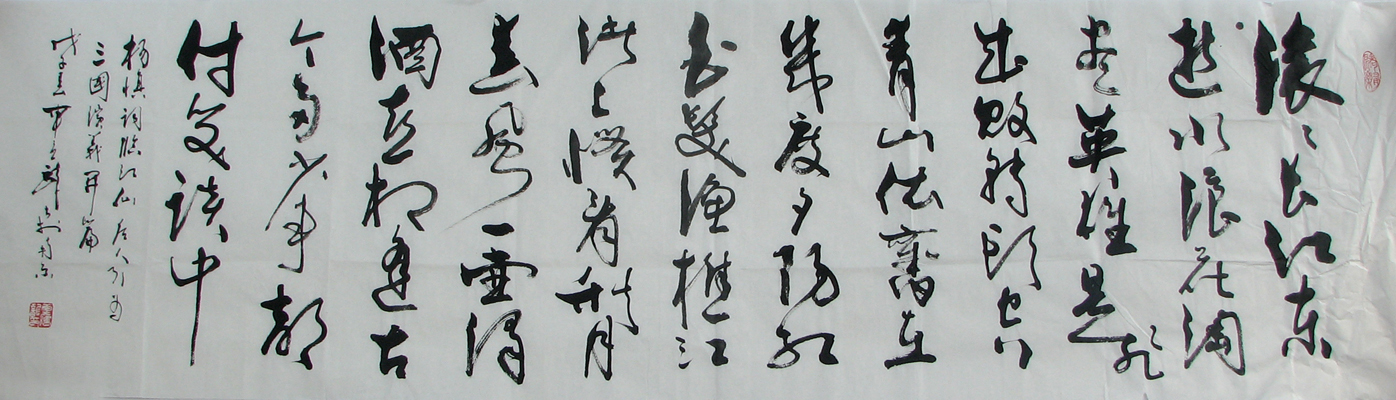 滚滚长江东
逝水浪花淘
尽英雄是非
成败转头空
青山依旧在
几度夕阳红
白发渔樵江
渚上惯看秋月
春风一壶浊
酒喜相逢古
今多少事都
付笑谈中
杨慎词临江仙后人引为
三國演義开篇
戊子夏